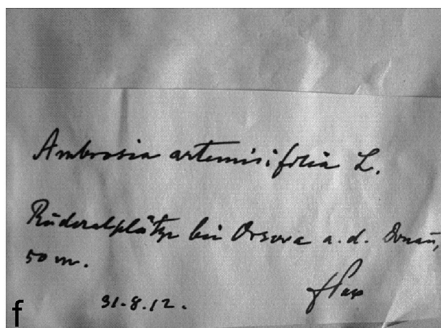 Ambrosia artemisifolia L.
Ruderalplätze bei Orsova a. d. Donau,
50 m.
31.8.12. F Pax
f